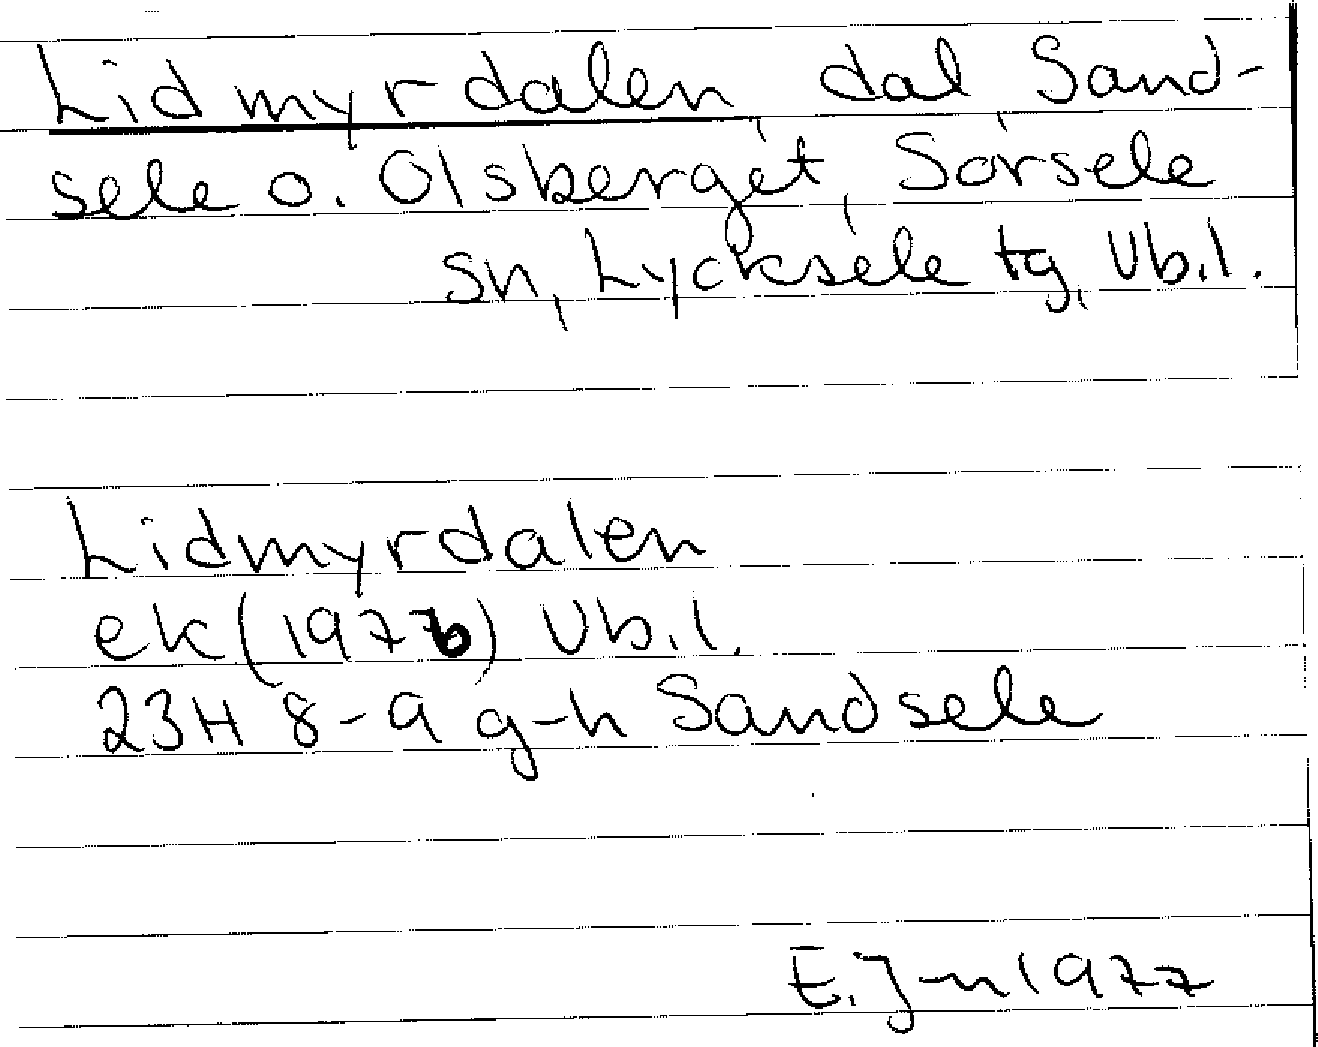 Lidmyrdalen dal Sand-
sele o. Olsberget, Sorsele
sn, Lycksele tg, Vb.l.
Lidmyrdalen
ek (1976) Vb.l.
23H 8-9 g-h Sandsele
E. J-n 1977